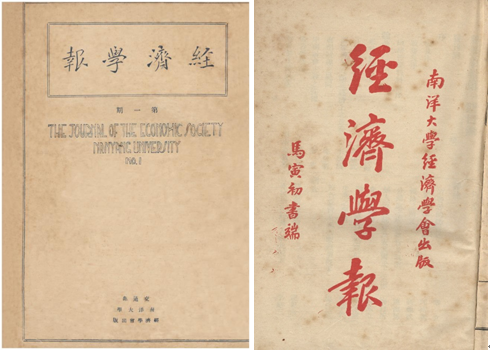 經濟學報
第一期
THE JOURNAL OF THE ECONOMIC SOCIETY
NANYANG UNIVERSITY
NO. 1
交通部
南洋大學
經濟學會出版
南洋大學經濟學會出版
經濟學報
馬寅初書端